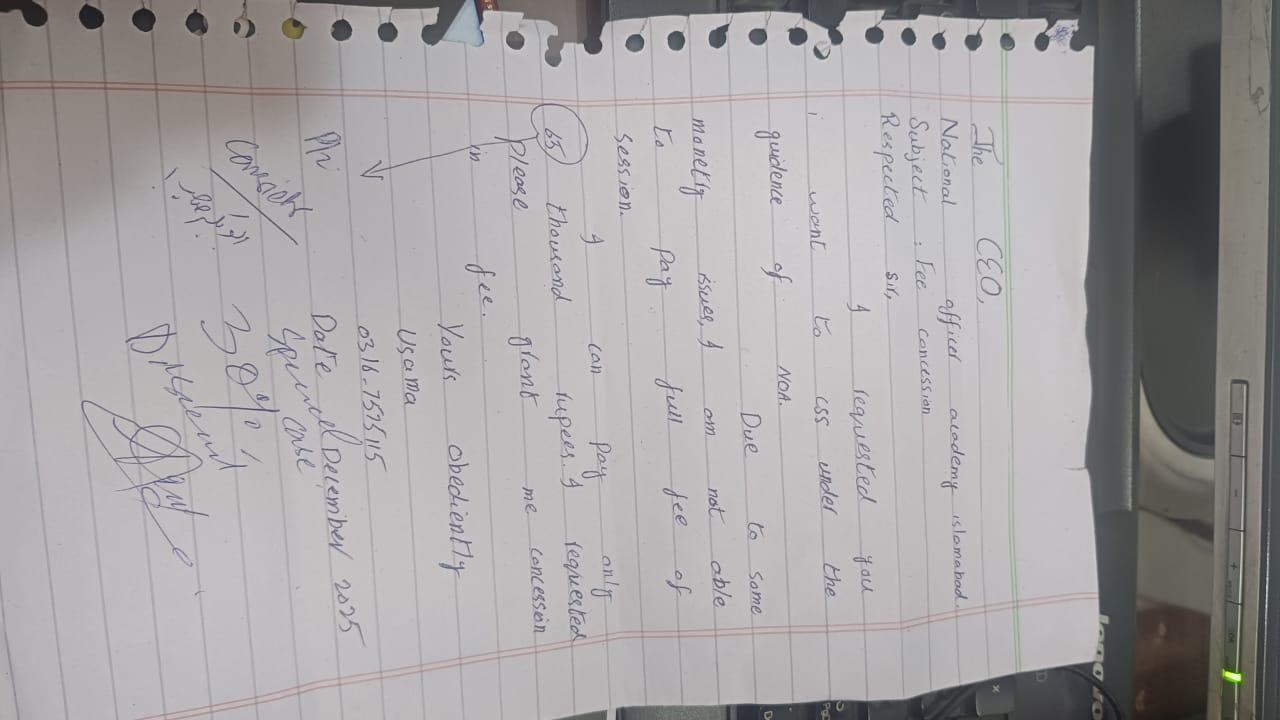 The CEO,
National officer academy islamabad.
Subject : Fee concession
Respected sir,
I requested you
i want to css under the
guidence of NOA.
Due to some
monetly issues, I am not able
to Pay full fee of
session.
I can Pay only
65 thousand rupees. I requested
please grant me concession
in fee.
Yours obediently
Usama
0316-7575115
Date December 2025
Special case
30%